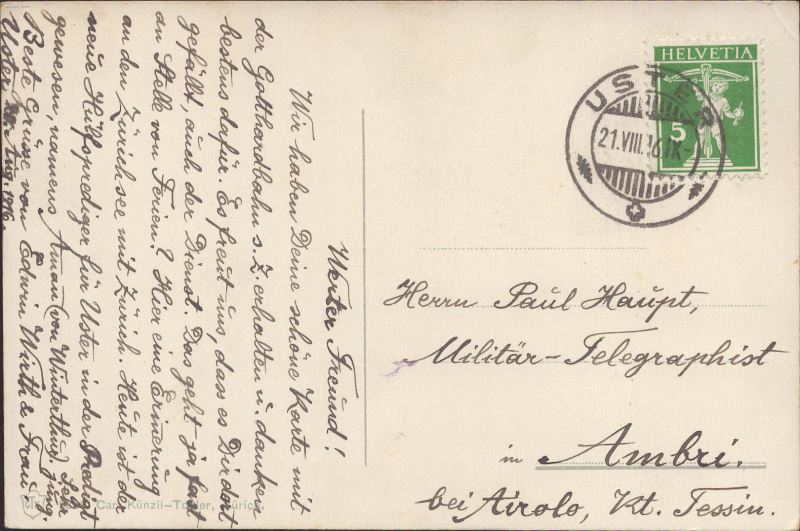 Werter Freund!
Wir haben Deine schöne Karte mit
der Gotthardbahn s. Z. erhalten u. danken
bestens dafür. Es freut uns, dass es Dir dort
gefällt, auch der Dienst. Das geht ja fast
an Stelle von Ferien! Hier eine Erinerung
an den Zürichsee mit Zürich. Heute ist der
neue Hülfsprediger für Uster in der Predigt
gewesen, namens Aman (von Winterthur). Sehr jung.
Beste Grüsse von Edwin Wirth & Frau
Uster, Aug. 1916.
HELVETIA
5
USTER
21.VIII.16.IX-
Herrn Paul Haupt,
Militär-Telegraphist
in Ambri.
bei Airolo, Kt. Tessin.
Carl Künzli-Tobler, Zürich